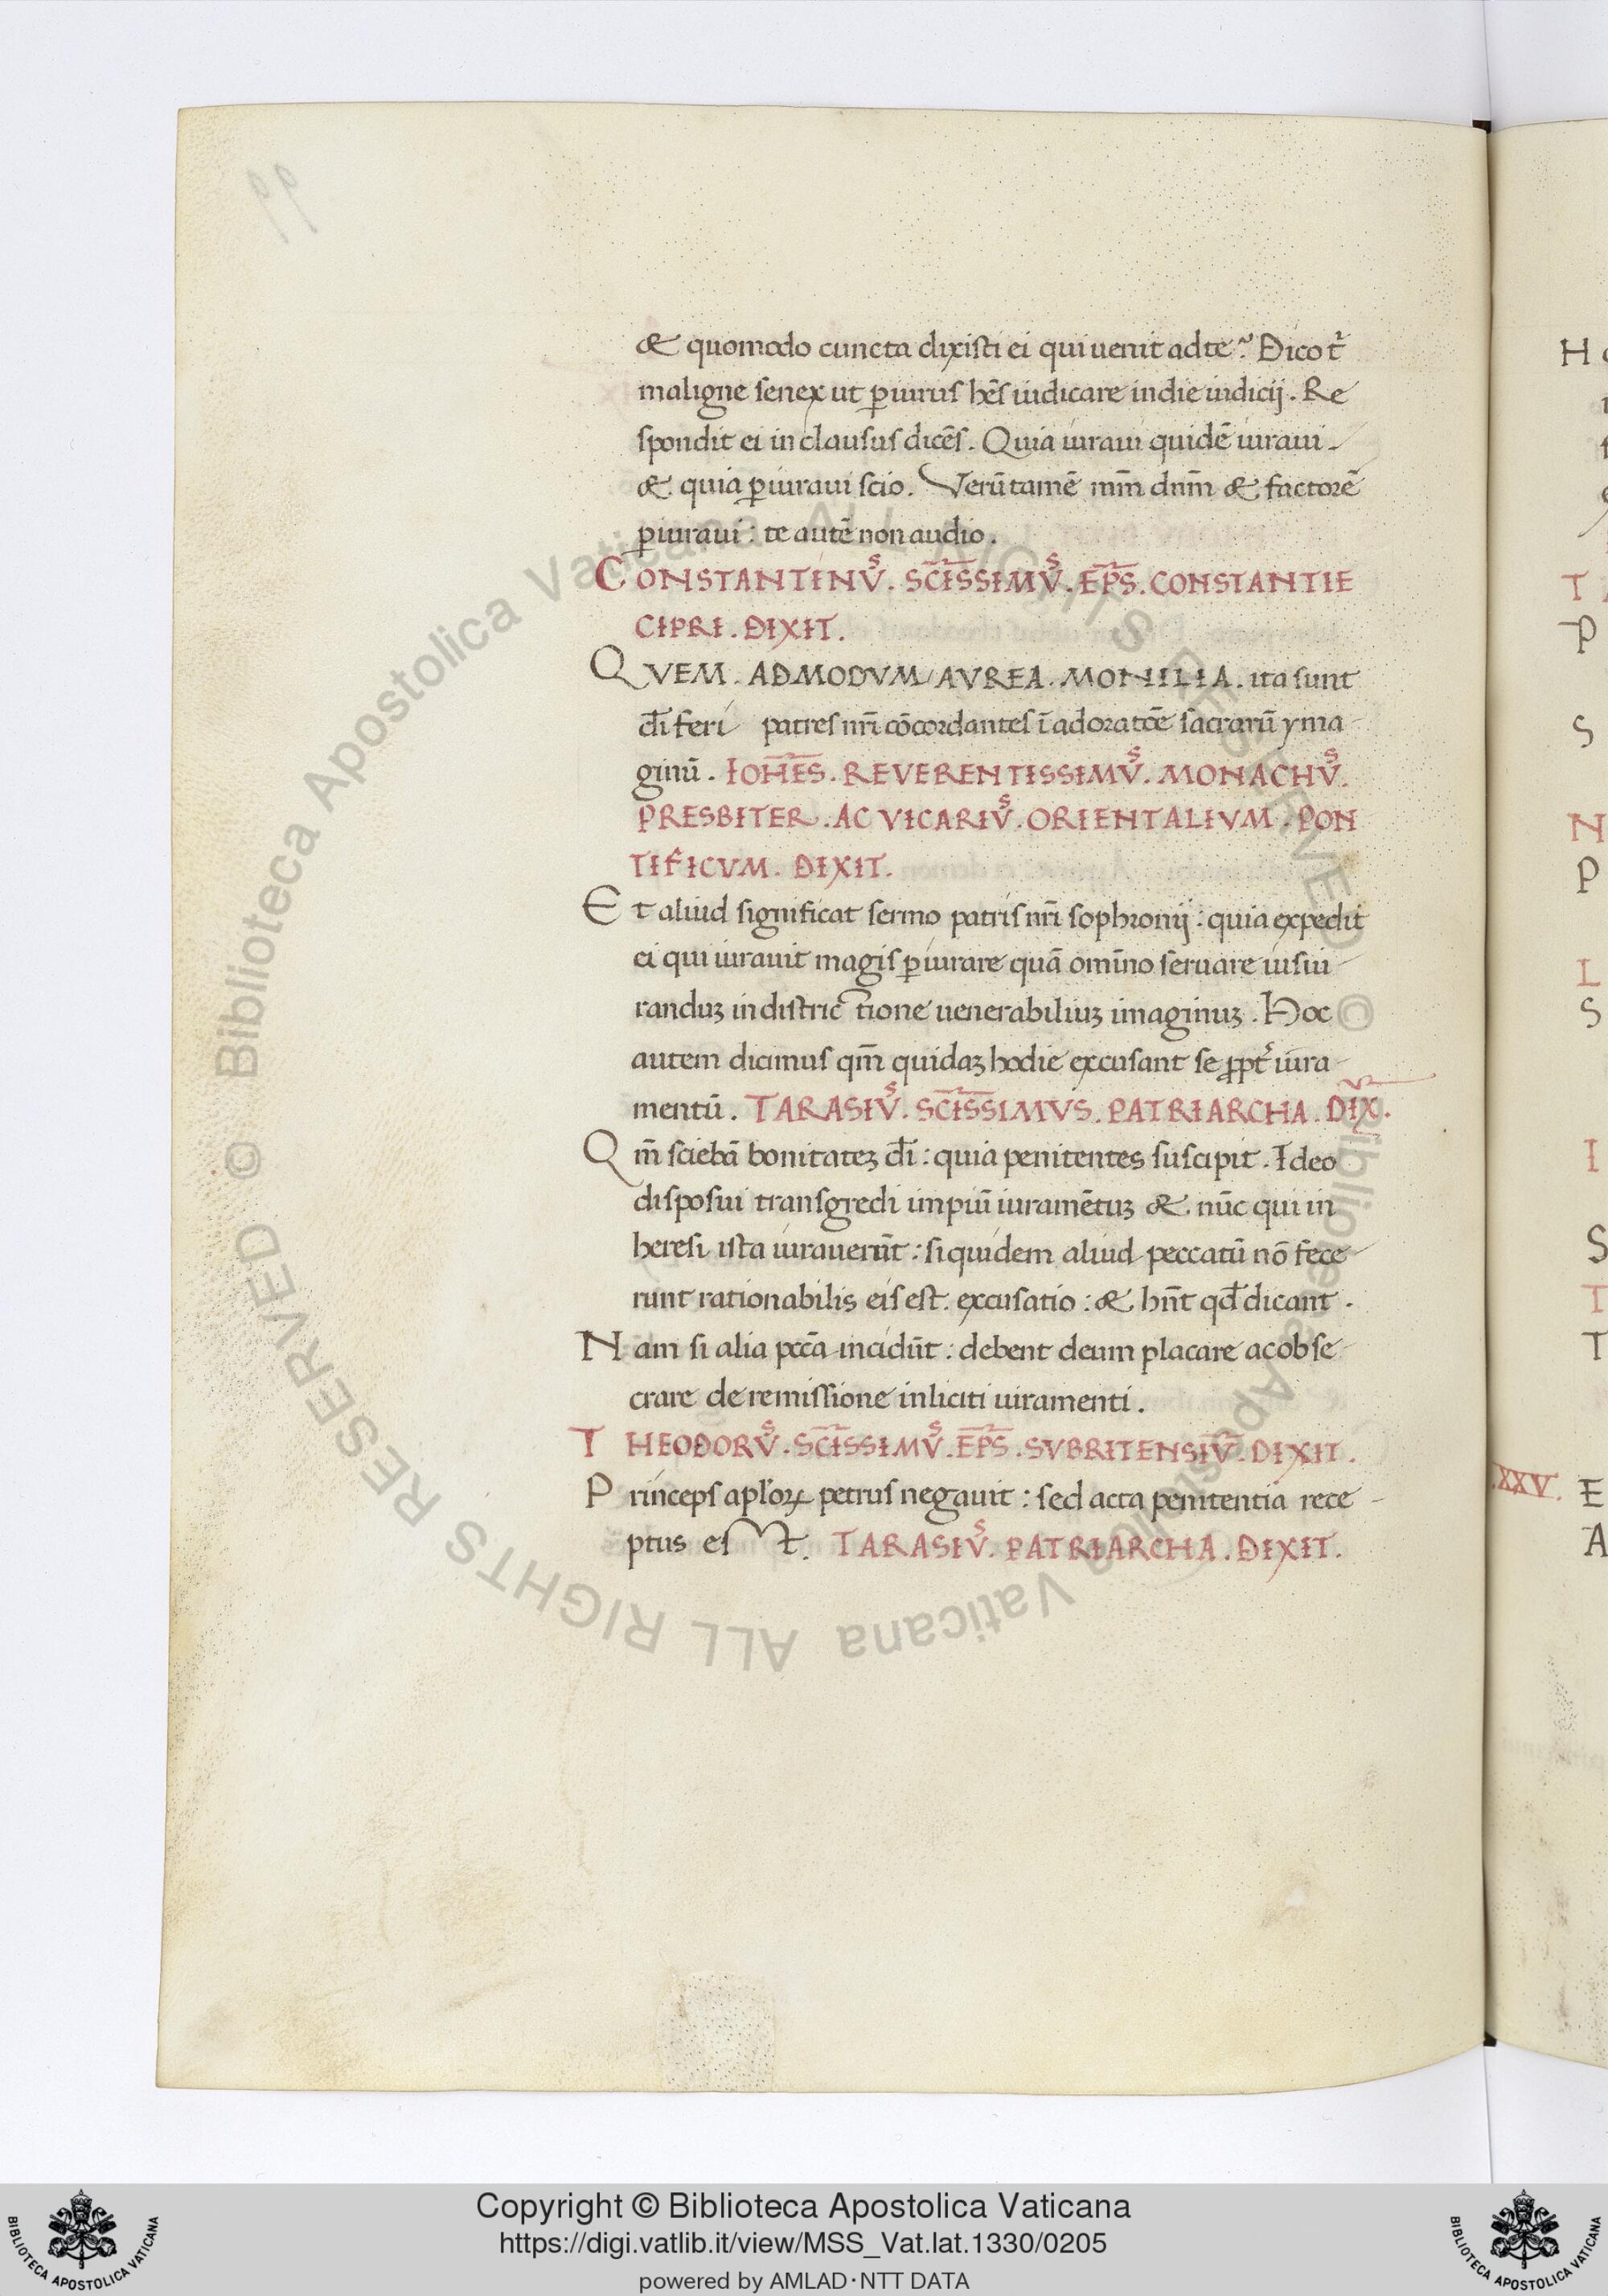 & quomodo cuncta dixisti ei qui uenit adte? Dico t᷑
maligne senex ut ꝑiurus hēs iudicare indie iudicij. Re
spondit ei inclausus dicēs. Quia iuraui quidē iuraui.
& quia ꝑiuraui scio. Verūtamē mm̄ dnm̄ & factorē
ꝑiuraui: te autē non audio.
CONSTANTINVˢ. SCĪSSIMVˢ. EPS̄. CONSTANTIE
CIPRI. DIXIT.
QVEM. ADMODVM AVREA. MONILIA. ita sunt
dī feri patres nrī cōcordantes ī adoratōe sacrarū yma
ginū. IOHĒS. REVERENTISSIMVˢ. MONACHVˢ.
PRESBITER. AC VICARIVˢ. ORIENTALIVM. PON
TIFICVM. DIXIT.
Et aliud significat sermo patris nrī sophronij: quia expedit
ei qui iurauit magis ꝑiurare quā omīno seruare iusiu
randuꝫ in districtione uenerabiliuꝫ imaginuꝫ. Hoc
autem dicimus qm̄ quidaꝫ hodie excusant se ꝓpt᷑ iura
mentū. TARASIVˢ. SCĪSSIMVS. PATRIARCHA. DIX̄.
Qm̄ sciebā bonitateꝫ dī: quia penitentes suscipit. Ideo
disposui transgredi impiū iuramētuꝫ & nūc qui in
heresi ista iurauerūt: siquidem aliud peccatū nō fece
runt rationabilis eis est. excusatio: & hn̄t qđ dicant.
Nam si alia pccā incidūt: debent deum placare ac obse
crare de remissione inliciti iuramenti.
THEODORVˢ. SCĪSSIMVˢ. EPS̄. SVBRITENSIV̄. DIXIT.
Princeps aplōꝝ petrus negauit: sed acta penitentia rece
ptus est. TARASIVˢ. PATRIARCHA. DIXIT.
XXV.
Copyright © Biblioteca Apostolica Vaticana
https://digi.vatlib.it/view/MSS_Vat.lat.1330/0205
powered by AMLAD·NTT DATA
BIBLIOTECA APOSTOLICA VATICANA
BIBLIOTECA APOSTOLICA VATICANA
© Biblioteca Apostolica Vaticana ALL RIGHTS RESERVED © Biblioteca Apostolica Vaticana ALL RIGHTS RESERVED